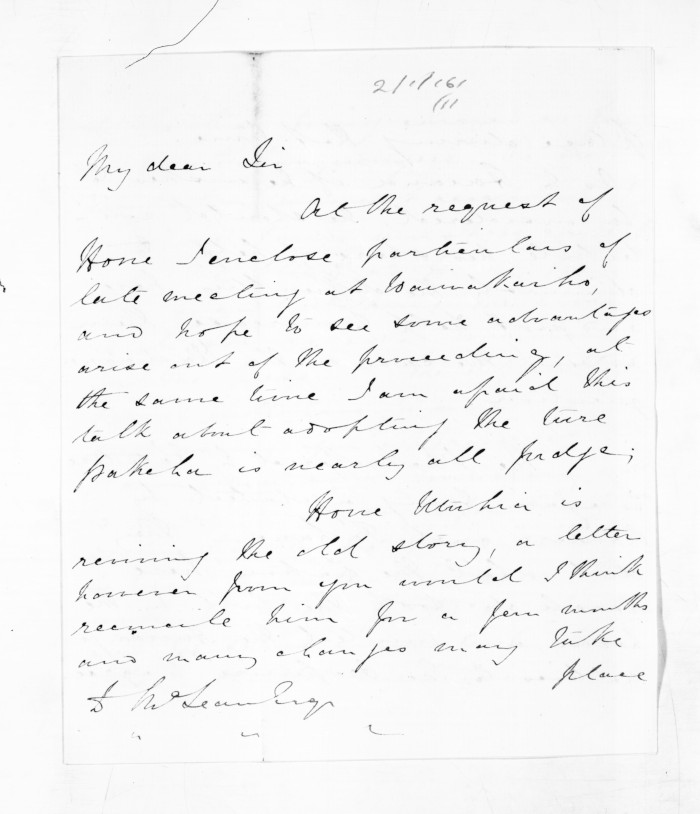 2/1/161
/11
My dear Sir
At the request of
Hone I enclose particulars of
late meeting at Waiwakaiho,
and hope to see some advantages
arise out of the proceeding, at
the same time I am afraid this
talk about adopting the ture
pakeha is nearly all fudge;
Hone is
reviving the old story, a letter
however from you would I think
reconcile him for a few months
and many changes may take
place
D McLean Esqr
" " "